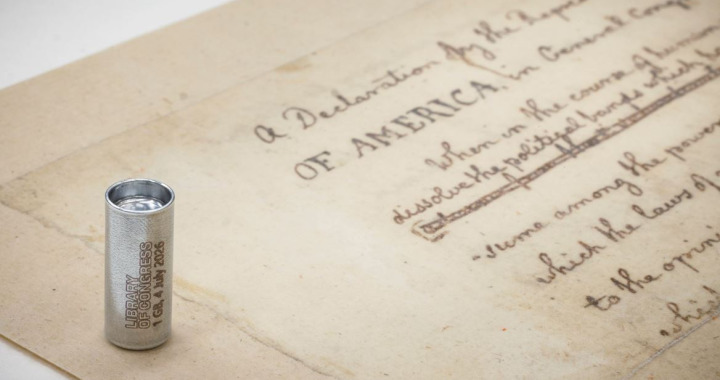 a Declaration by the Repre
OF AMERICA, in General Cong
When in the course of human
dissolve the political bands which ha
-sume among the power
which the laws of
to the opini
which
LIBRARY
OF CONGRESS
1 GB, 4 July 2026